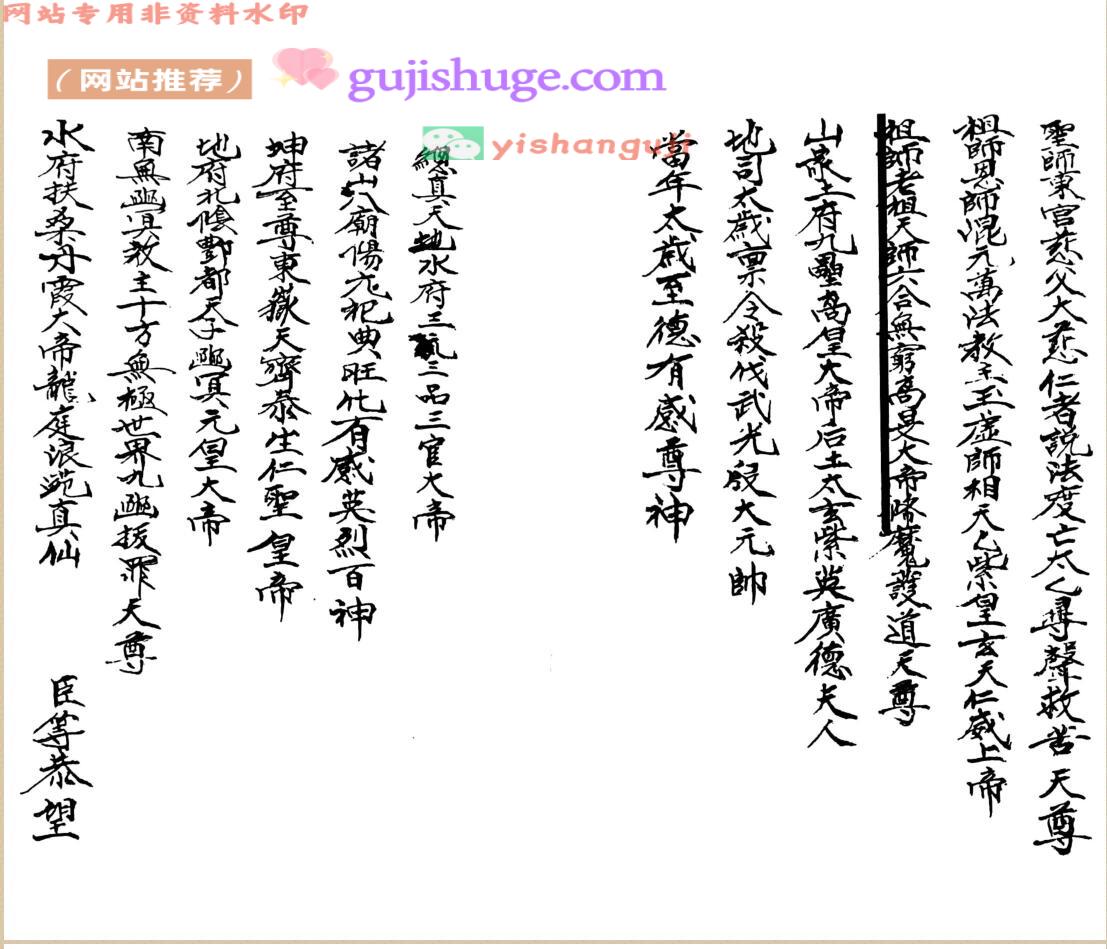 网站专用非资料水印
（网站推荐）
gujishuge.com
yishanguji
聖師東宮慈父大慈仁者説法度亡太乙尋聲救苦天尊
祖師恩師混元萬法教主玉虛師相天乙紫皇玄天仁威上帝
祖師老祖天師六合無窮高昊大帝降魔護道天尊
山泉土府九壘高皇大帝后土太玄紫英廣德夫人
地司太歲禀令殺伐武光殷大元帥
當年太歲至德有感尊神
總真天地水府三元三品三官大帝
諸山八廟傷亢祀典旺化有感英烈百神
坤府至尊東嶽天齊泰生仁聖皇帝
地府北陰酆都天子幽冥元皇大帝
南無幽冥教主十方無極世界九幽拔罪天尊
水府扶桑丹霞大帝龍庭浪苑真仙
臣等恭望